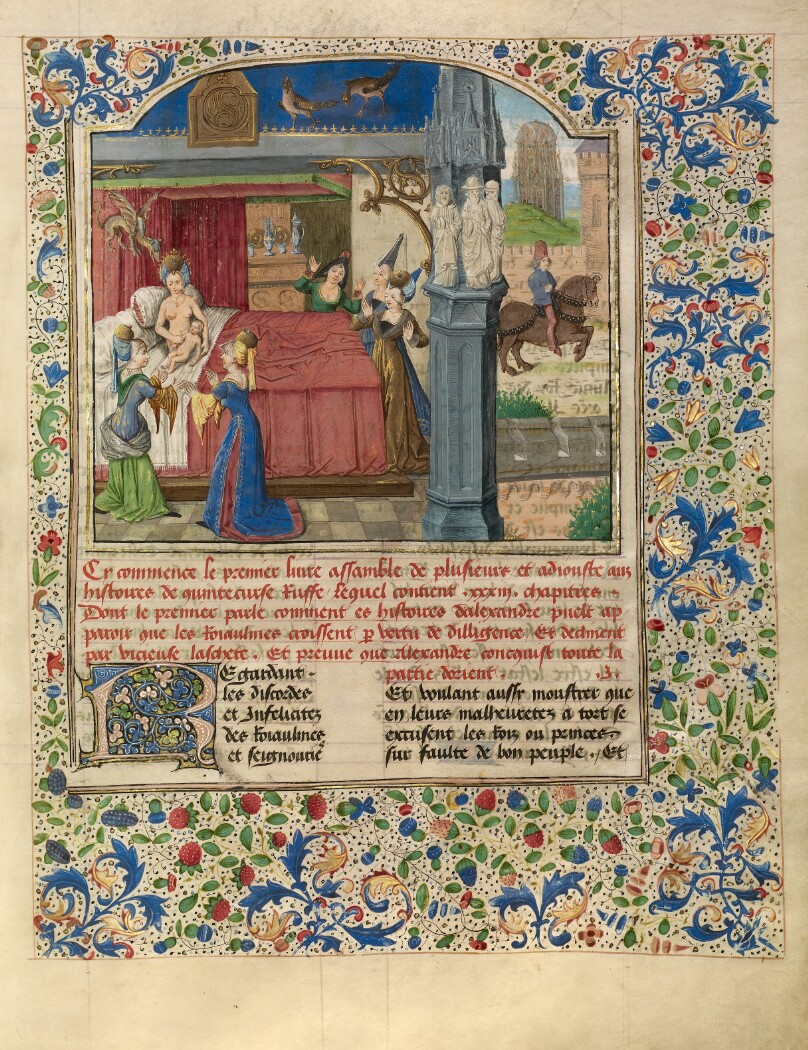 Cy commence le premier livre assamble de plusieurs et adiouste aux
histoires de quinte curse Ruffe. lequel contient .xxxiii. chapitres.
Dont le premier parle comment es histoires dalexandre puelt ap
paroir que les Roiaulmes croissent p vertu de dilligence Et declinent
par vicieuse laschete. Et preuve que Alexandre concquist toute la
partie dorient. .B.
REgardant
les discordes
et Infelicitez
des Roiaulmes
et seignourie
Et voulant aussy monstrer que
en leurs malheuretez a tort se
excusent les Roix ou princes
sur faulte de bon peuple. Et